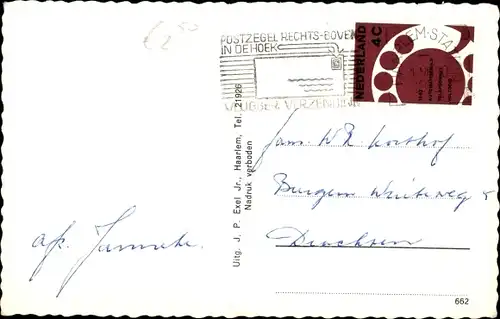 € 2 50
POSTZEGEL RECHTS-BOVEN
IN DE HOEK
VLUGGER VERZENDING
NEDERLAND 4C
HAARLEM-STA
Uitg. J. P. Exel Jr., Haarlem, Tel. 21926
Nadruk verboden
Fam. W R
Burgem Wuiteweg
Drachten
afz. Janneke.
662